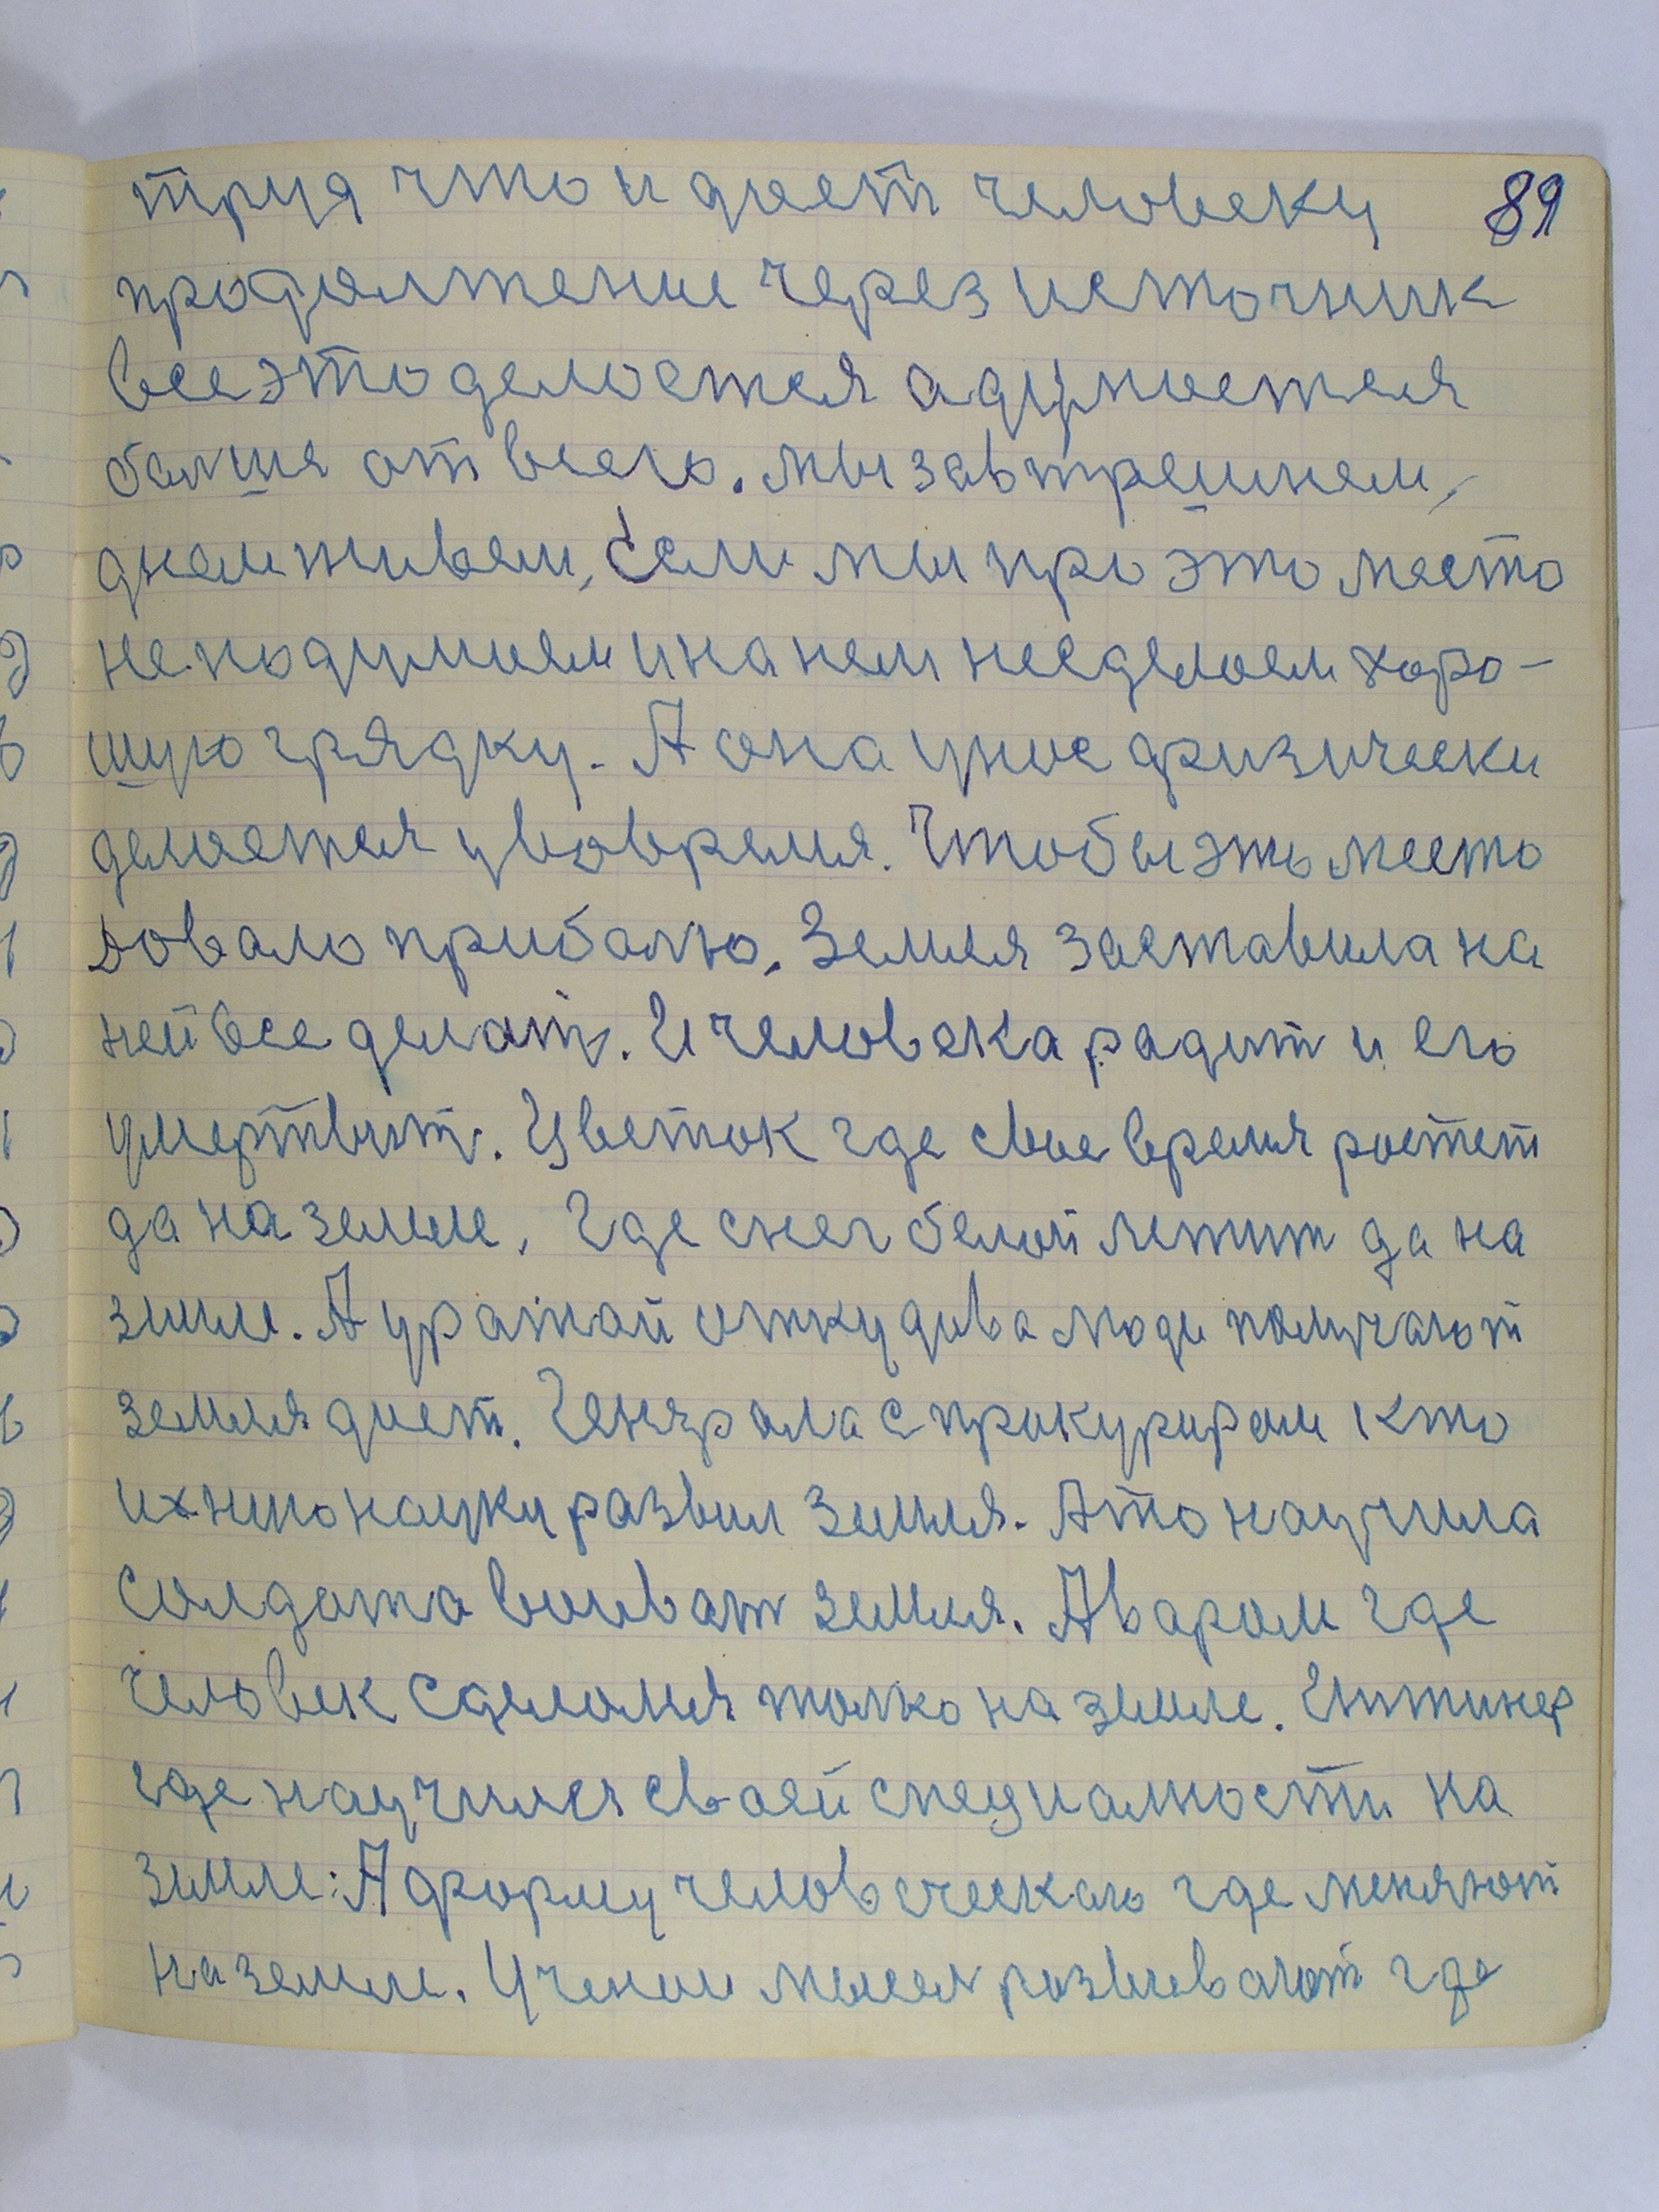 труя что и дает человеку 89
продолжение через источник
все это делается а думается
болше от всего. мы завтрешнем,
днем живем, Если мы про это место
не подумаем и на нем не сделаем хоро-
шую грядку. А она у нас физически
делается у вовремя. Чтобы это место
довало прибалю. Земля заставила на
ней все делат. И человека радит и его
умертвит. Цветок где свое время ростет
да на земле. Где снег белой летит да на
зимле. А уражай откудова люди получают
земля дает. Генярала с пракурорам кто
ихнию науку развил Зимля. А то научила
солдата воиват земля. А варом где
человек сделался толко на зимле. Интинер
где научился своей специалности на
зимле: А форму человеческаю где меняют
на земле. Ученои мысля развивают где